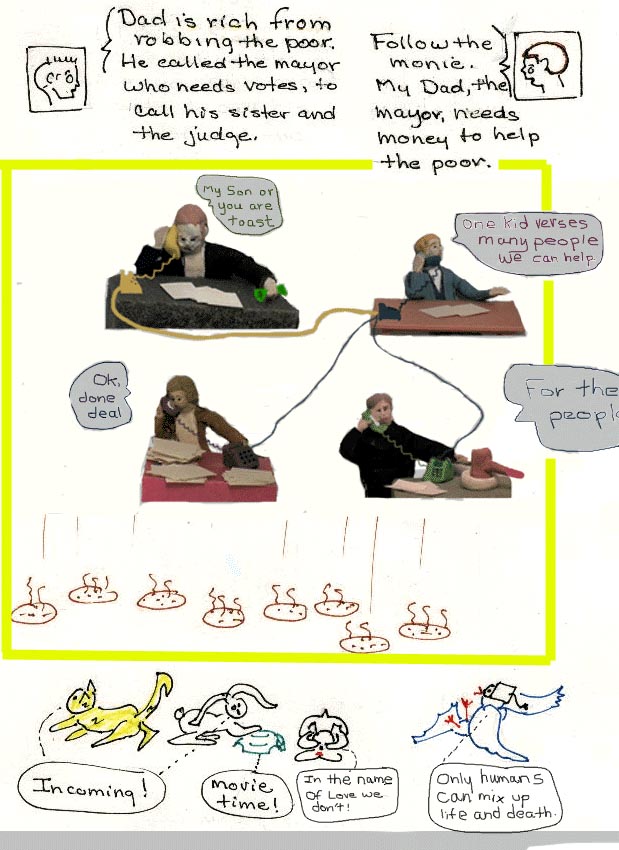 Dad is rich from
robbing the poor.
He called the mayor
who needs votes, to
call his sister and
the judge.
Follow the
monie.
My Dad, the
mayor, needs
money to help
the poor.
My Son or
you are
toast
One kid verses
many people
we can help
Ok,
done
deal
For the
people
Incoming!
movie
time!
In the name
Of Love we
don't!
Only humans
Can mix up
life and death.